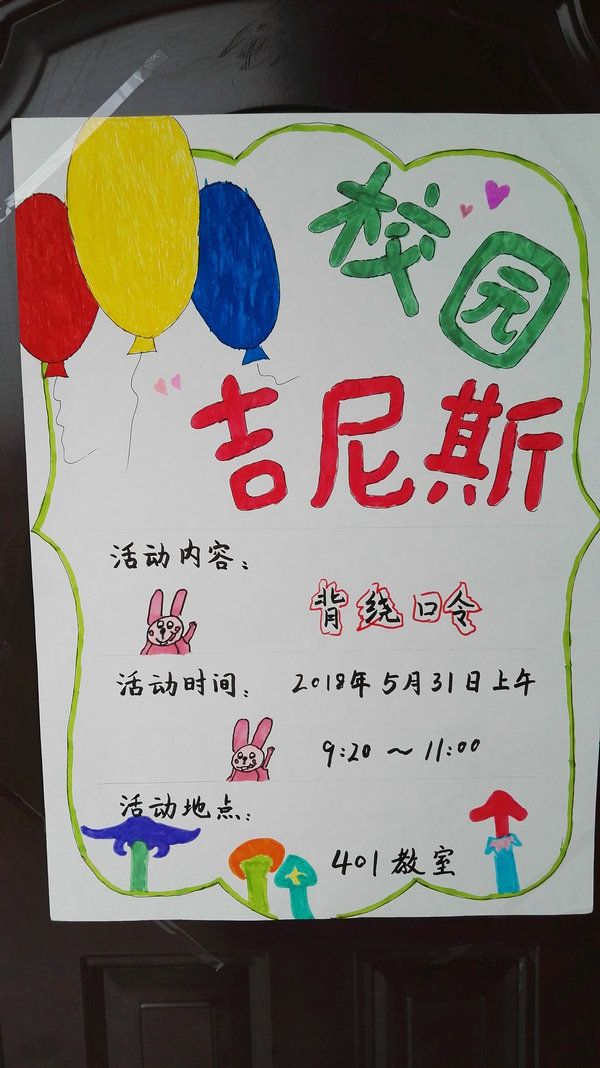 校园
吉尼斯
活动内容：
背绕口令
活动时间：
2018年5月31日上午
9:20～11:00
活动地点：
401教室